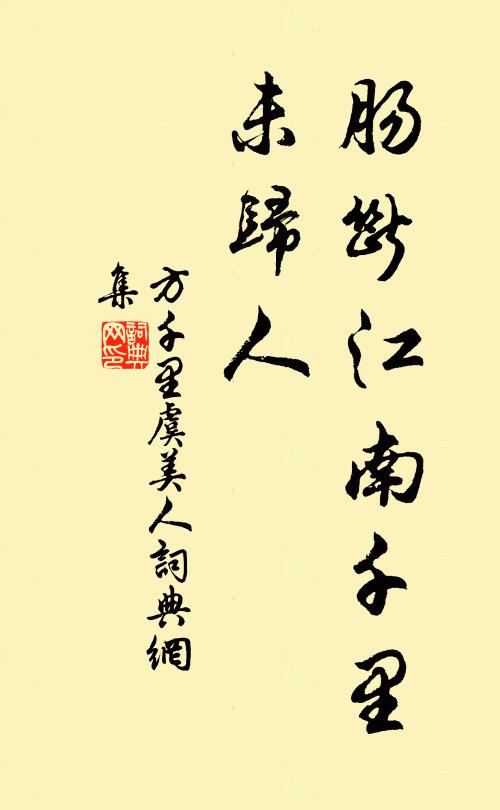 肠斷江南千里
未歸人
方千里虞美人詞典網
集
詞典
网印